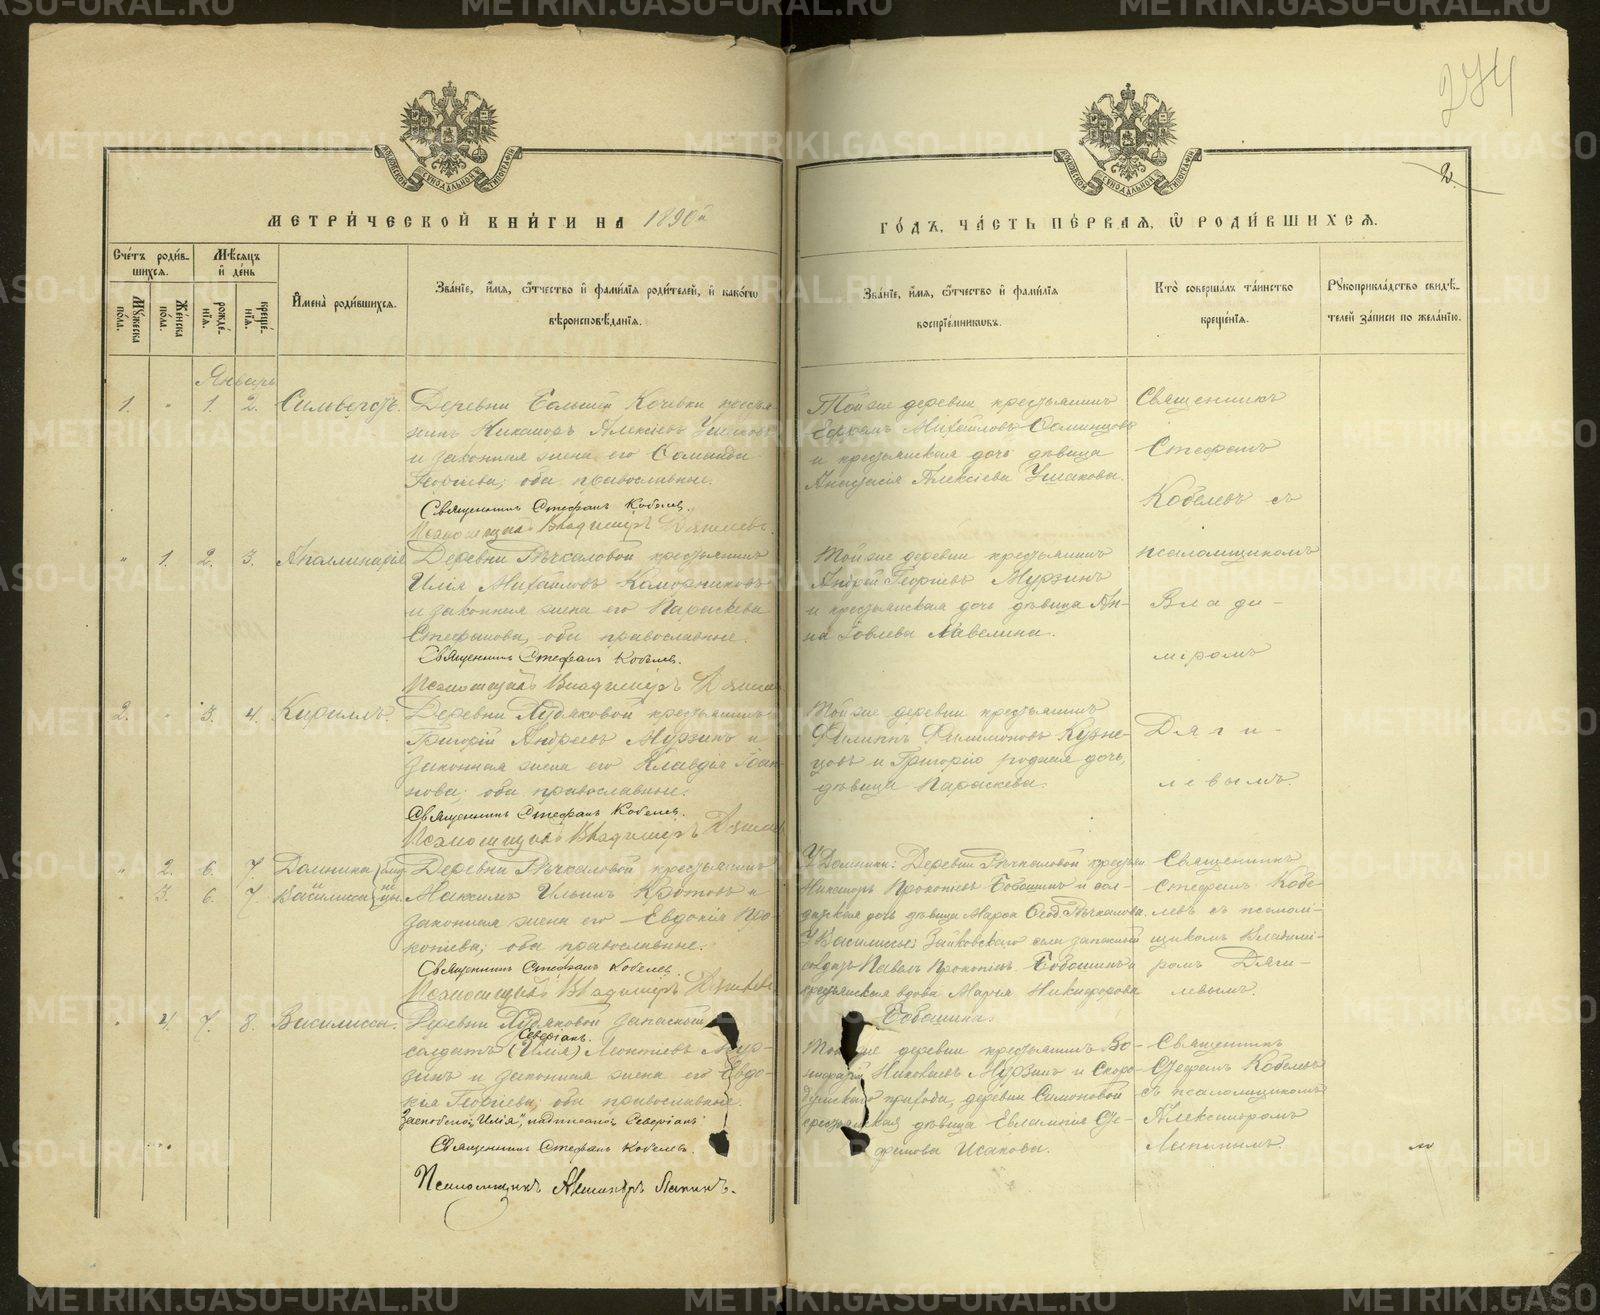 METRIKI.GASO-URAL.RU
274
2.
МОСКОВСКОЙ СѴНОДАЛЬНОЙ ТИПОГРАФІИ
МЕТРИ́ЧЕСКОЙ КНИ́ГИ НА 1890й
ГО́ДЪ, ЧА́СТЬ ПЕ́РВАЯ, Ѿ РОДИ́ВШИХСЯ.
Сче́тъ роди́в-
шихся.
Мѣсяцъ
и де́нь
Му́жеска по́ла.
Же́нска по́ла.
рожде́нія.
креще́нія.
Имена̀ роди́вшихся.
Зва́ніе, имя, ѻ҆́тчество и фами́лія роди́телей, и како́гѡ
вѣроисповѣ́данія.
Зва́ніе, имя, ѻ҆́тчество и фами́лія
воспріе́мникѡвъ.
Кто̀ соверша́лъ та́инство
креще́нія.
Рукоприкла́дство свидѣ́-
телей за́писи по жела́нію.
Январь
1. „ 1. 2. Сильвестръ.
Деревни Большой Кочевки кресть-
янинъ Никаноръ Алексѣевъ Ушаковъ
и законная жена его
оба православные.
Священникъ Стефанъ Кобелев.
Псаломщикъ Владимиръ Дягилевъ.
Тойже деревни крестьянинъ
Михайловъ Осминцовъ
и крестьянская дочь дѣвица
Анастасія Алексѣева Ушакова.
Священникъ
Стефанъ
Кобелевъ съ
„ 1. 2. 3. Аполлинарія
Деревни Рѣчкаловой крестьянинъ
Илія Михайловъ
и законная жена его Параскева
Стефанова, оба православные.
Священникъ Стефанъ Кобелев.
Псаломщикъ Владимиръ
Тойже деревни крестьянинъ
Андрей Георгіевъ Мурзинъ
и крестьянская дочь дѣвица Ан-
на Іовлева
псаломщикомъ
Влади-
миромъ
2. „ 3. 4. Кириллъ.
Деревни Худяковой крестьянинъ
Григорій Андреевъ Мурзинъ и
законная жена его Клавдія Іоан-
нова; оба православные.
Священникъ Стефанъ Кобелев.
Псаломщикъ Владимиръ
Тойже деревни крестьянинъ
Филиппъ Филимоновъ Кузне-
цовъ и Григорія родная дочь,
дѣвица Параскева.
Дяги-
левымъ.
„ 2. 6. 7. Домника
3. 6. 7. Василисса близ-
не-
цы.
Деревни Рѣчкаловой крестьянинъ
Максимъ Ильинъ Кротовъ и
законная жена его Евдокія Про-
копіева; оба православные.
Священникъ Стефанъ Кобелев.
Псаломщикъ Владимиръ
У Домники: Деревни Рѣчкаловой крестьян.
Никаноръ Прокопіевъ Бабошинъ и сол-
датская дочь дѣвица Марѳа Рѣчкалова.
У Василиссы: Зайковскаго села запасный
солдатъ Павелъ Прокопіевъ Бабошинъ и
крестьянская вдова Марья Никифорова
Бабошина.
Священникъ
Стефанъ Кобе-
левъ съ псалом-
щикомъ Владими-
ромъ Дяги-
левымъ.
„ 4. 7. 8. Василисса.
Деревни Худяковой запасный
Северіанъ.
солдатъ (Илія) Леонтіевъ Мур-
зинъ и законная жена его Евдо-
кія Георгіева; оба православные.
„Илія“, надписано Северіанъ
Священникъ Стефанъ Кобелев.
Псаломщикъ Александръ Лапинъ.
Тойже деревни крестьянинъ
Николаевъ Мурзинъ и Скоро-
думскаго прихода, деревни Симоновой
крестьянская дѣвица Евлампія Сте-
фанова Исакова.
Священникъ
Стефанъ Кобелевъ
съ псаломщикомъ
Александромъ
Лапинымъ.